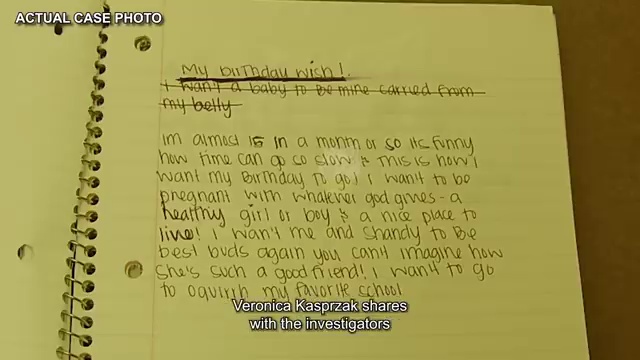 ACTUAL CASE PHOTO
My birthday wish!
I want a baby to be mine carried from
my belly
Im almost 15 in a month or so its funny
how time can go so slow & this is how I
want my Birthday to go! I want to be
pregnant with whatever god gives - a
healthy girl or boy & a nice place to
live! I want me and Shandy to be
best buds again you cant imagine how
she's such a good friend! I want to go
to Oquirrh my favorite school
Veronica Kasprzak shares
with the investigators